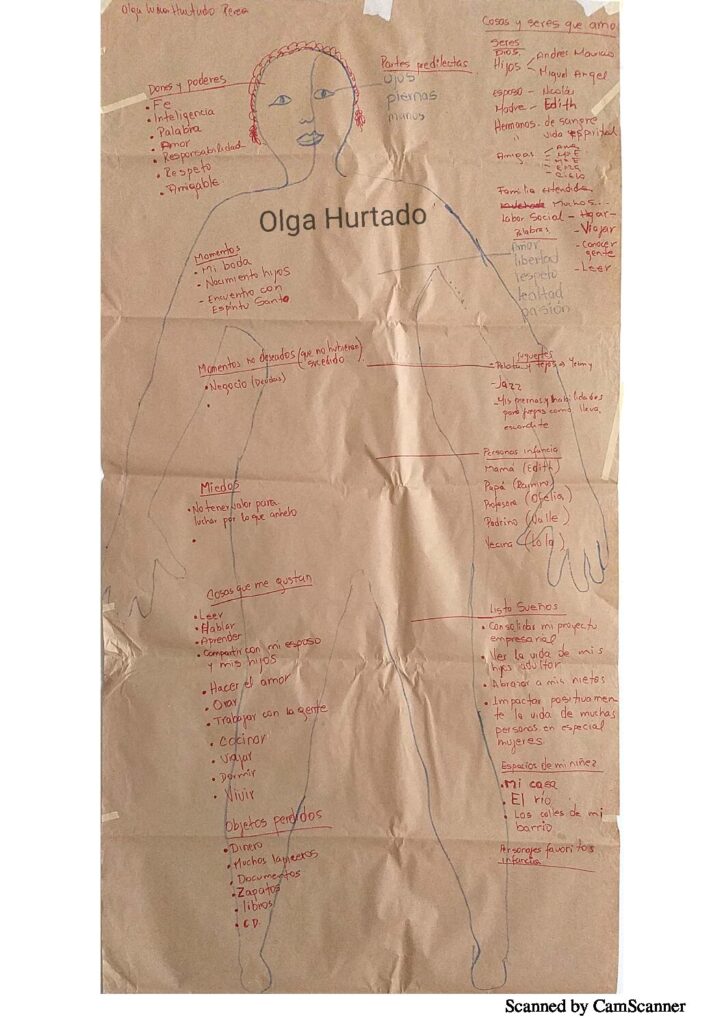 Olga Hurtado Perea
Dones y poderes
• Fe
• Inteligencia
• Palabra
• Amor
• Responsabilidad
• Respeto
• Amigable
Partes predilectas
ojos
piernas
manos
Cosas y seres que amo
Seres
Dios.
Hijos < Andres Mauricio
Miguel Angel
Esposo - Nicolás
Madre - Edith
Hermanos. de sangre
" vida espiritual
Amigas
Familia extendida
Muchos...
Labor Social - Hogar -
- Viajar
- Conocer
gente
- Leer
Palabras
Amor
libertad
respeto
lealtad
pasión
Olga Hurtado
Momentos
• Mi boda
• Nacimiento hijos
- Encuentro con
Espíritu Santo
Momentos no deseados (que no hubieran
sucedido)
• Negocio (Deudas)
•
Juguetes
- Pelota y tejos → Yeimy
- Jazz
- Mis piernas y habilidades
para juegos como lleva,
escondite
Personas infancia
Mamá (Edith)
Papá (Ramiro)
Profesora (Ofelia)
Padrino (Valle)
Vecina (Lola)
Miedos
• No tener valor para
luchar por lo que anhelo
•
Cosas que me gustan
• Leer
• Hablar
• Aprender
• Compartir con mi esposo
y mis hijos
• Hacer el amor
• Orar
• Trabajar con la gente
• Cocinar
• Viajar
• Dormir
• Vivir
Lista Sueños
• Consolidar mi proyecto
empresarial
• Ver la vida de mis
hijos adultos
• Abrazar a mis nietos
• Impactar positivamen-
te la vida de muchas
personas en especial
mujeres
Espacios de mi niñez
• Mi casa
• El río
• Las calles de mi
barrio
Personajes favoritos
infancia
Objetos perdidos
• Dinero
• Muchos lapiceros
• Documentos
• Zapatos
• libros
• CD.
Scanned by CamScanner